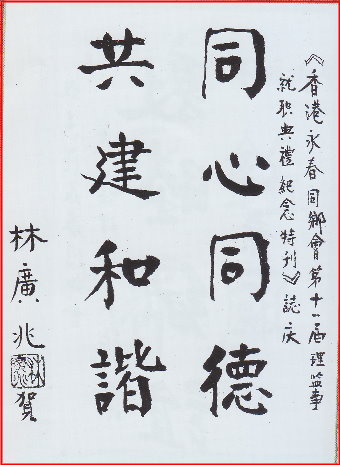 《香港永春同鄉會第十一届理监事
就职典禮紀念特刊》誌庆
同心同德
共建和諧
林廣兆賀